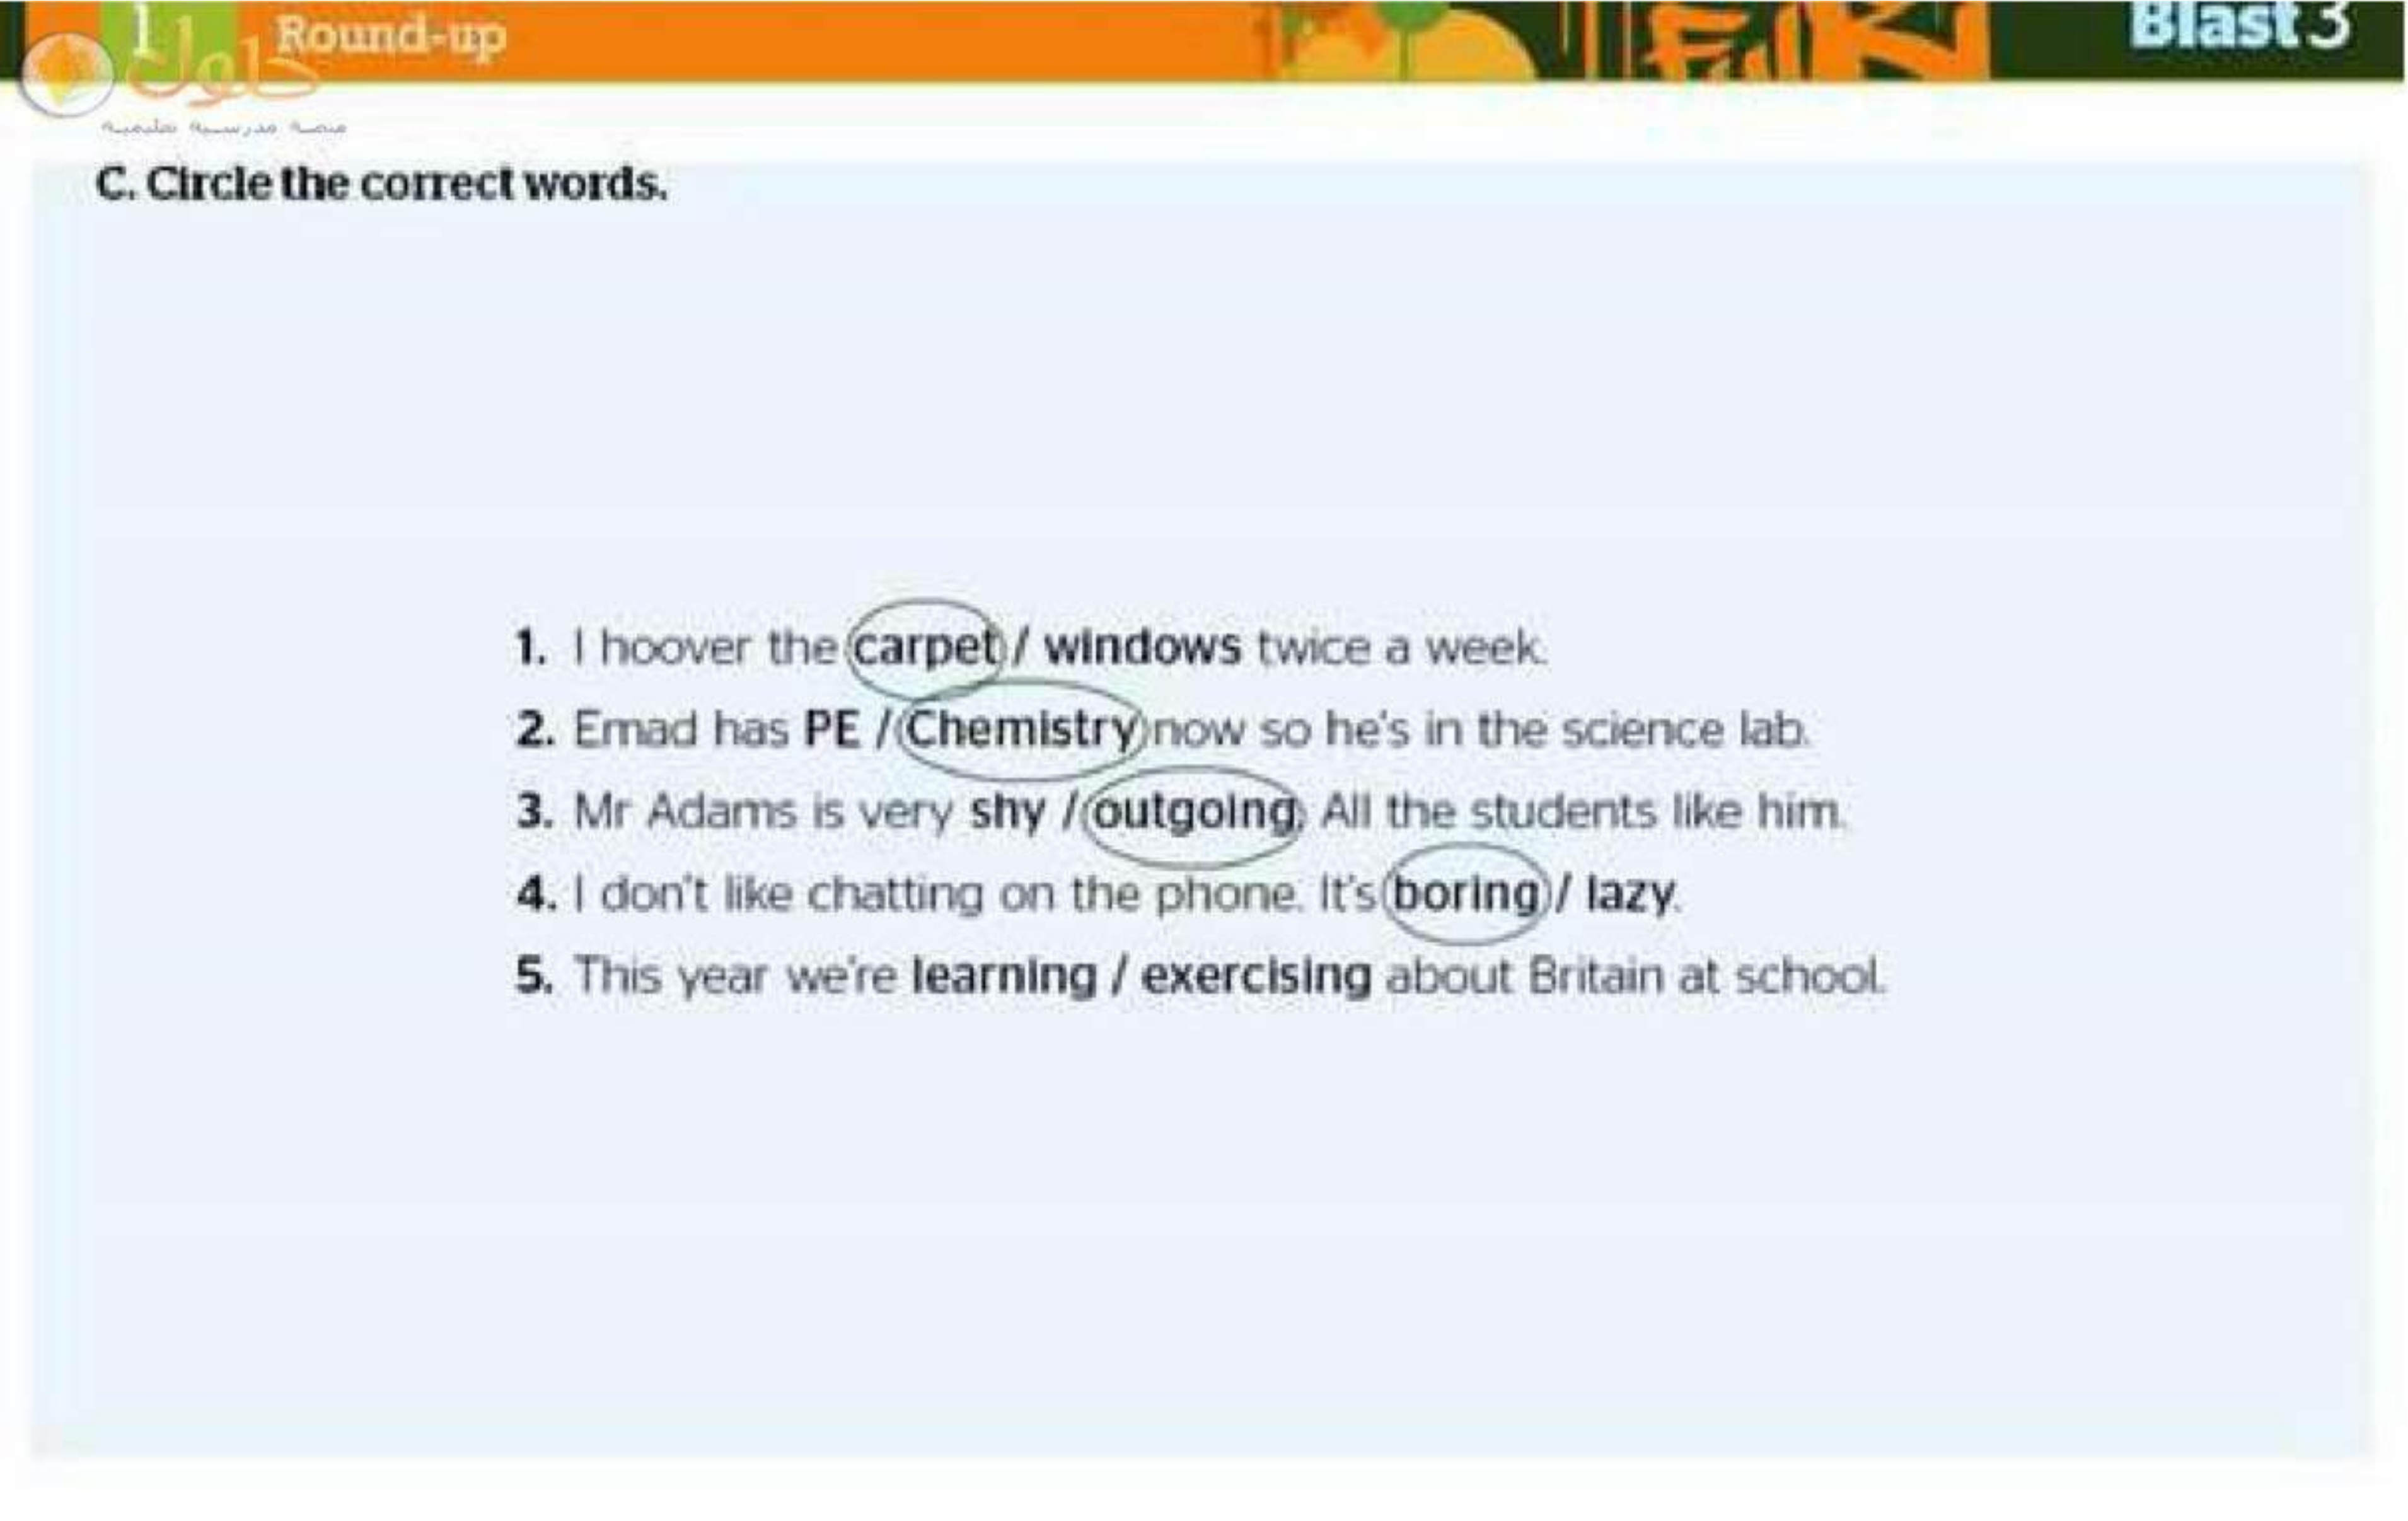 1 Round-up
Blast 3
حلول
منصة مدرسية تعليمية
C. Circle the correct words.
1. I hoover the carpet / windows twice a week.
2. Emad has PE / Chemistry now so he's in the science lab.
3. Mr Adams is very shy / outgoing. All the students like him.
4. I don't like chatting on the phone. It's boring / lazy.
5. This year we're learning / exercising about Britain at school.